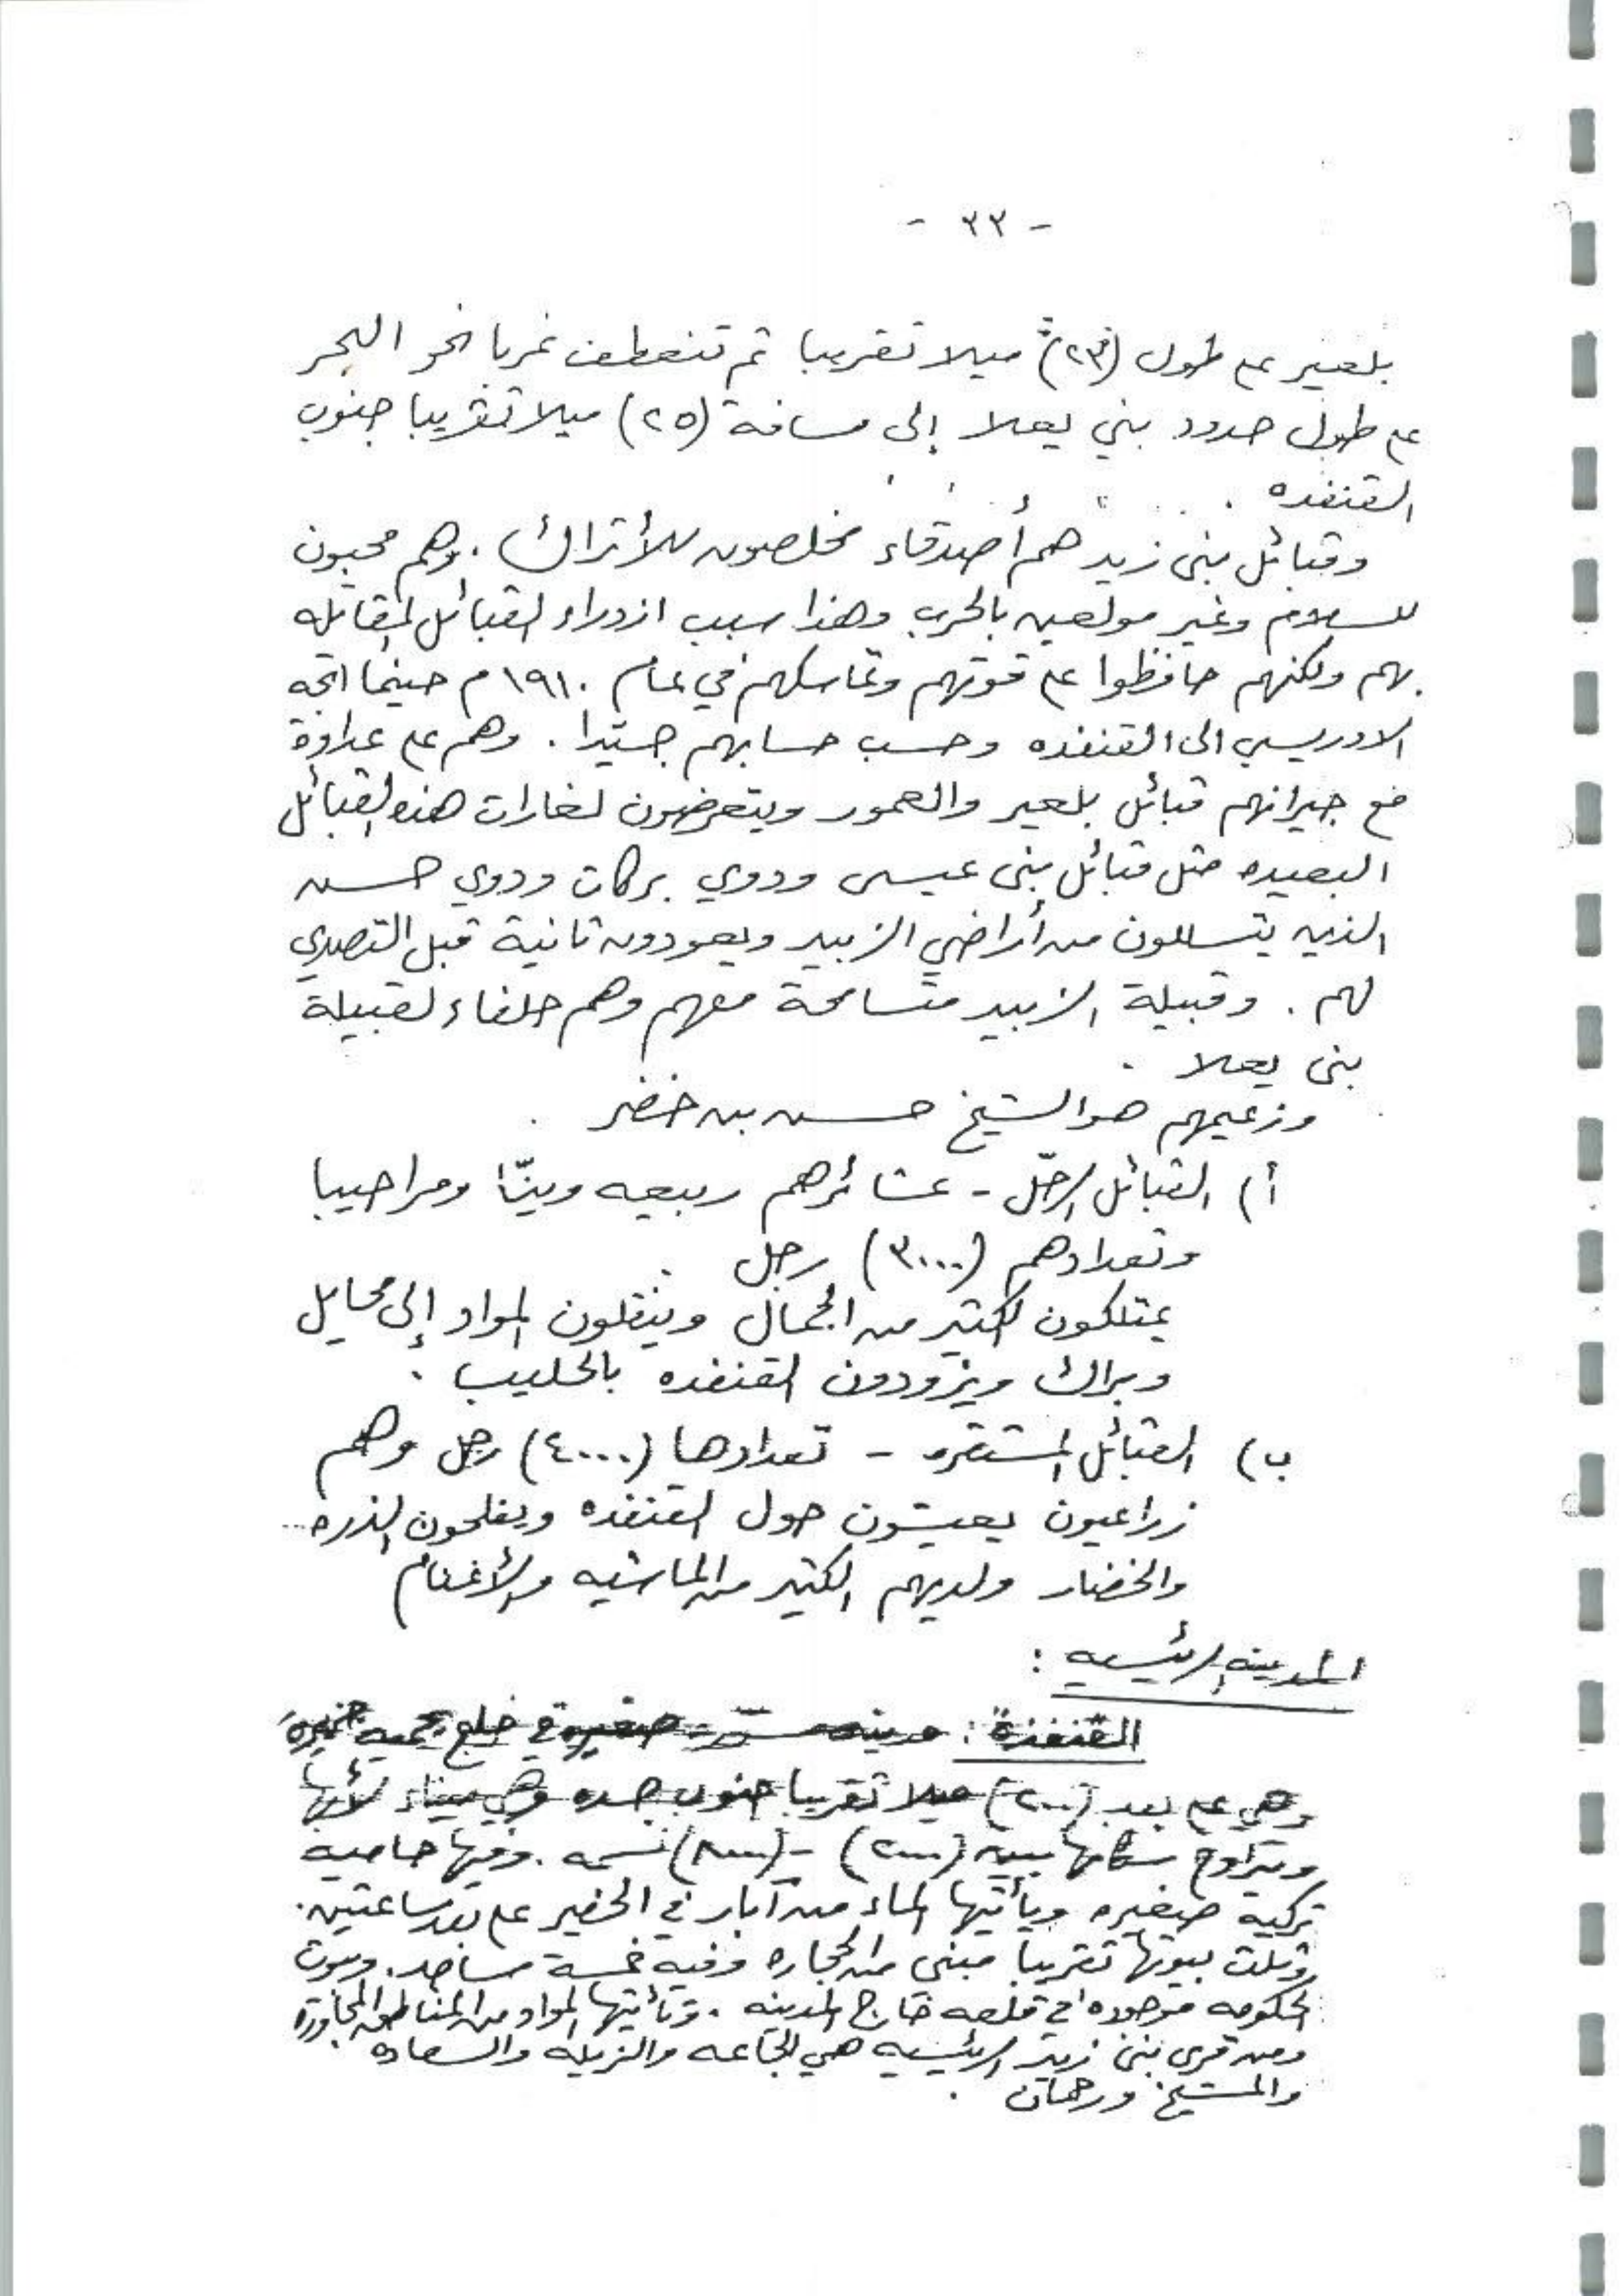 - ٣٣ -
بلعير على طول (٢٣) ميلا تقريبا ثم تنعطف غربا نحو البحر
على طول حدود بني يعلا إلى مسافة (٢٥) ميلا تقريبا جنوب
القنفده .
وقبائل بنى زيد هم أصدقاء مخلصون للأتراك . وهم محبون
للسلام وغير مولعين بالحرب وهذا سبب ازدراء القبائل المقاتله
بهم ولكنهم حافظوا على قوتهم وتماسكهم في عام ١٩١٠ م حينما اتجه
الادريسي الى القنفذه وحسب حسابهم جيّدا . وهم على عداوة
مع جيرانهم قبائل بلعير والعمور ويتعرضون لغارات هذه القبائل
البعيده مثل قبائل بنى عيسى وذوي بركات وذوي حسن
الذين يتسللون من أراضي الزبيد ويعودون ثانية قبل التصدي
لهم . وقبيلة الزبيد متسامحة معهم وهم حلفاء لقبيلة
بنى يعلا .
وزعيمهم هو الشيخ حسن بن خضر .
أ) القبائل الرحّل - عشائرهم ربيعه وينّا ومراحيبا
وتعدادهم (٣٠٠٠) رجل .
يمتلكون الكثير من الجمال وينقلون المواد إلى محايل
وبراك ويزودون القنفذه بالحليب .
ب) القبائل المستقره - تعدادها (٤٠٠٠) رجل وهم
زراعيون يعيشون حول القنفذه ويفلحون الذره
والخضار ولديهم الكثير من الماشيه والأغنام
المدينه الرئيسيه :
القنفذة : مدينه صغيرة في خليج
وهي على بعد (٢٠٠) ميلا تقريبا جنوب جده وهي ميناء
ويتراوح سكانها بين (٢٠٠٠) - (٨٠٠٠) نسمه . وفيها حاميه
تركية صغيره ويأتيها الماء من آبار في الحفير على بعد ساعتين .
وثلث بيوتها تقريبا مبنى من الحجاره وفيه خمسة مساجد . وبيوت
الحكومه موجوده في قلعه خارج المدينه . وتأتيها المواد من المناطق المجاورة
ومن قرى بنى زيد الرئيسيه هي والزيله والسعاده
والمشيخ ورحمان .